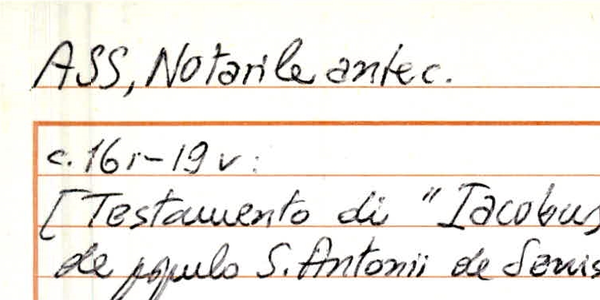 ASS, Notarile antec.
c. 16r-19v:
[Testamento di "Iacobus
de populo S. Antonii de Senis